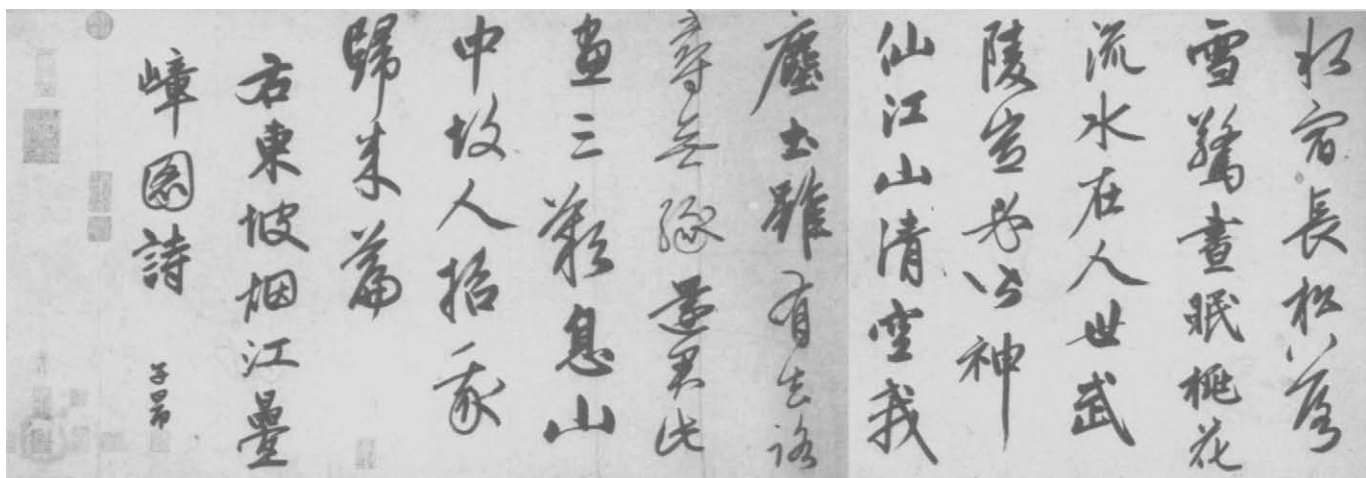 宿長松落
雪驚晝眠桃花
流水在人世武
陵豈必皆神
仙江山清空我
塵土雖有去路
尋無緣還君此
畫三歎息山
中故人招我
歸来篇
右東坡烟江疊
嶂圖詩 子昂